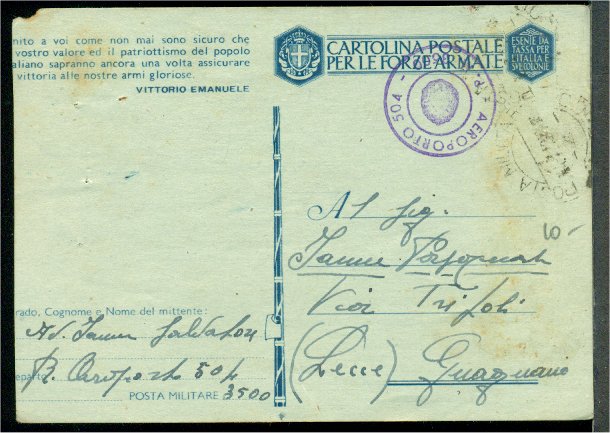 nito a voi come non mai sono sicuro che
vostro valore ed il patriottismo del popolo
aliano sapranno ancora una volta assicurare
vittoria alle nostre armi gloriose.
VITTORIO EMANUELE
CARTOLINA POSTALE
PER LE FORZE ARMATE
ESENTE DA
TASSA PER
L'ITALIA E
SVE COLONIE
AEROPORTO 504
Al Sig.
Via Tripoli
(Lecce) Guagnano
rado, Cognome e Nome del mittente:
Av. Salvatore
eparto
R. Aeroporto 504
POSTA MILITARE 3500
6-